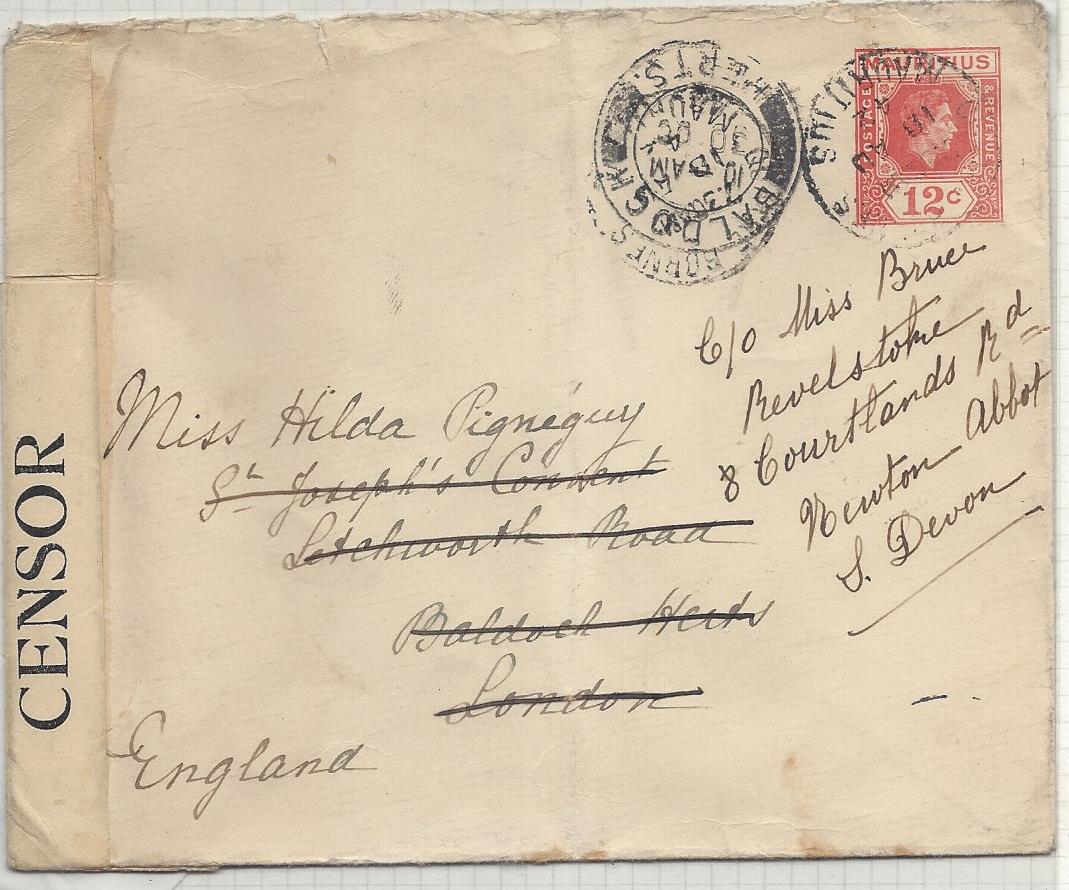 CENSOR
BALDOCK
HERTS.
10.30 AM
30
MAURITIUS
POSTAGE
& REVENUE
12c
Miss Hilda Pignéguy
St. Joseph's Convent
Letchworth Road
Baldock Herts
London
England
C/o Miss Bruce
Revelstoke
8 Courtlands Rd
Newton Abbot
S. Devon